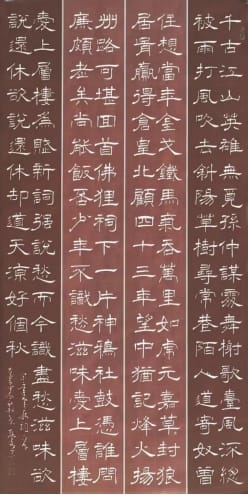 千古江山英雄無覓孫仲謀處舞榭歌臺風流總
被雨打風吹去斜陽草樹尋常巷陌人道寄奴曾
住想當年金戈鐵馬氣吞萬里如虎元嘉草草封狼
居胥贏得倉皇北顧四十三年望中猶記烽火揚
州路可堪回首佛狸祠下一片神鴉社鼓憑誰問
廉頗老矣尚能飯否少年不識愁滋味愛上層樓
愛上層樓為賦新詞強說愁而今識盡愁滋味欲
說還休欲說還休卻道天涼好個秋